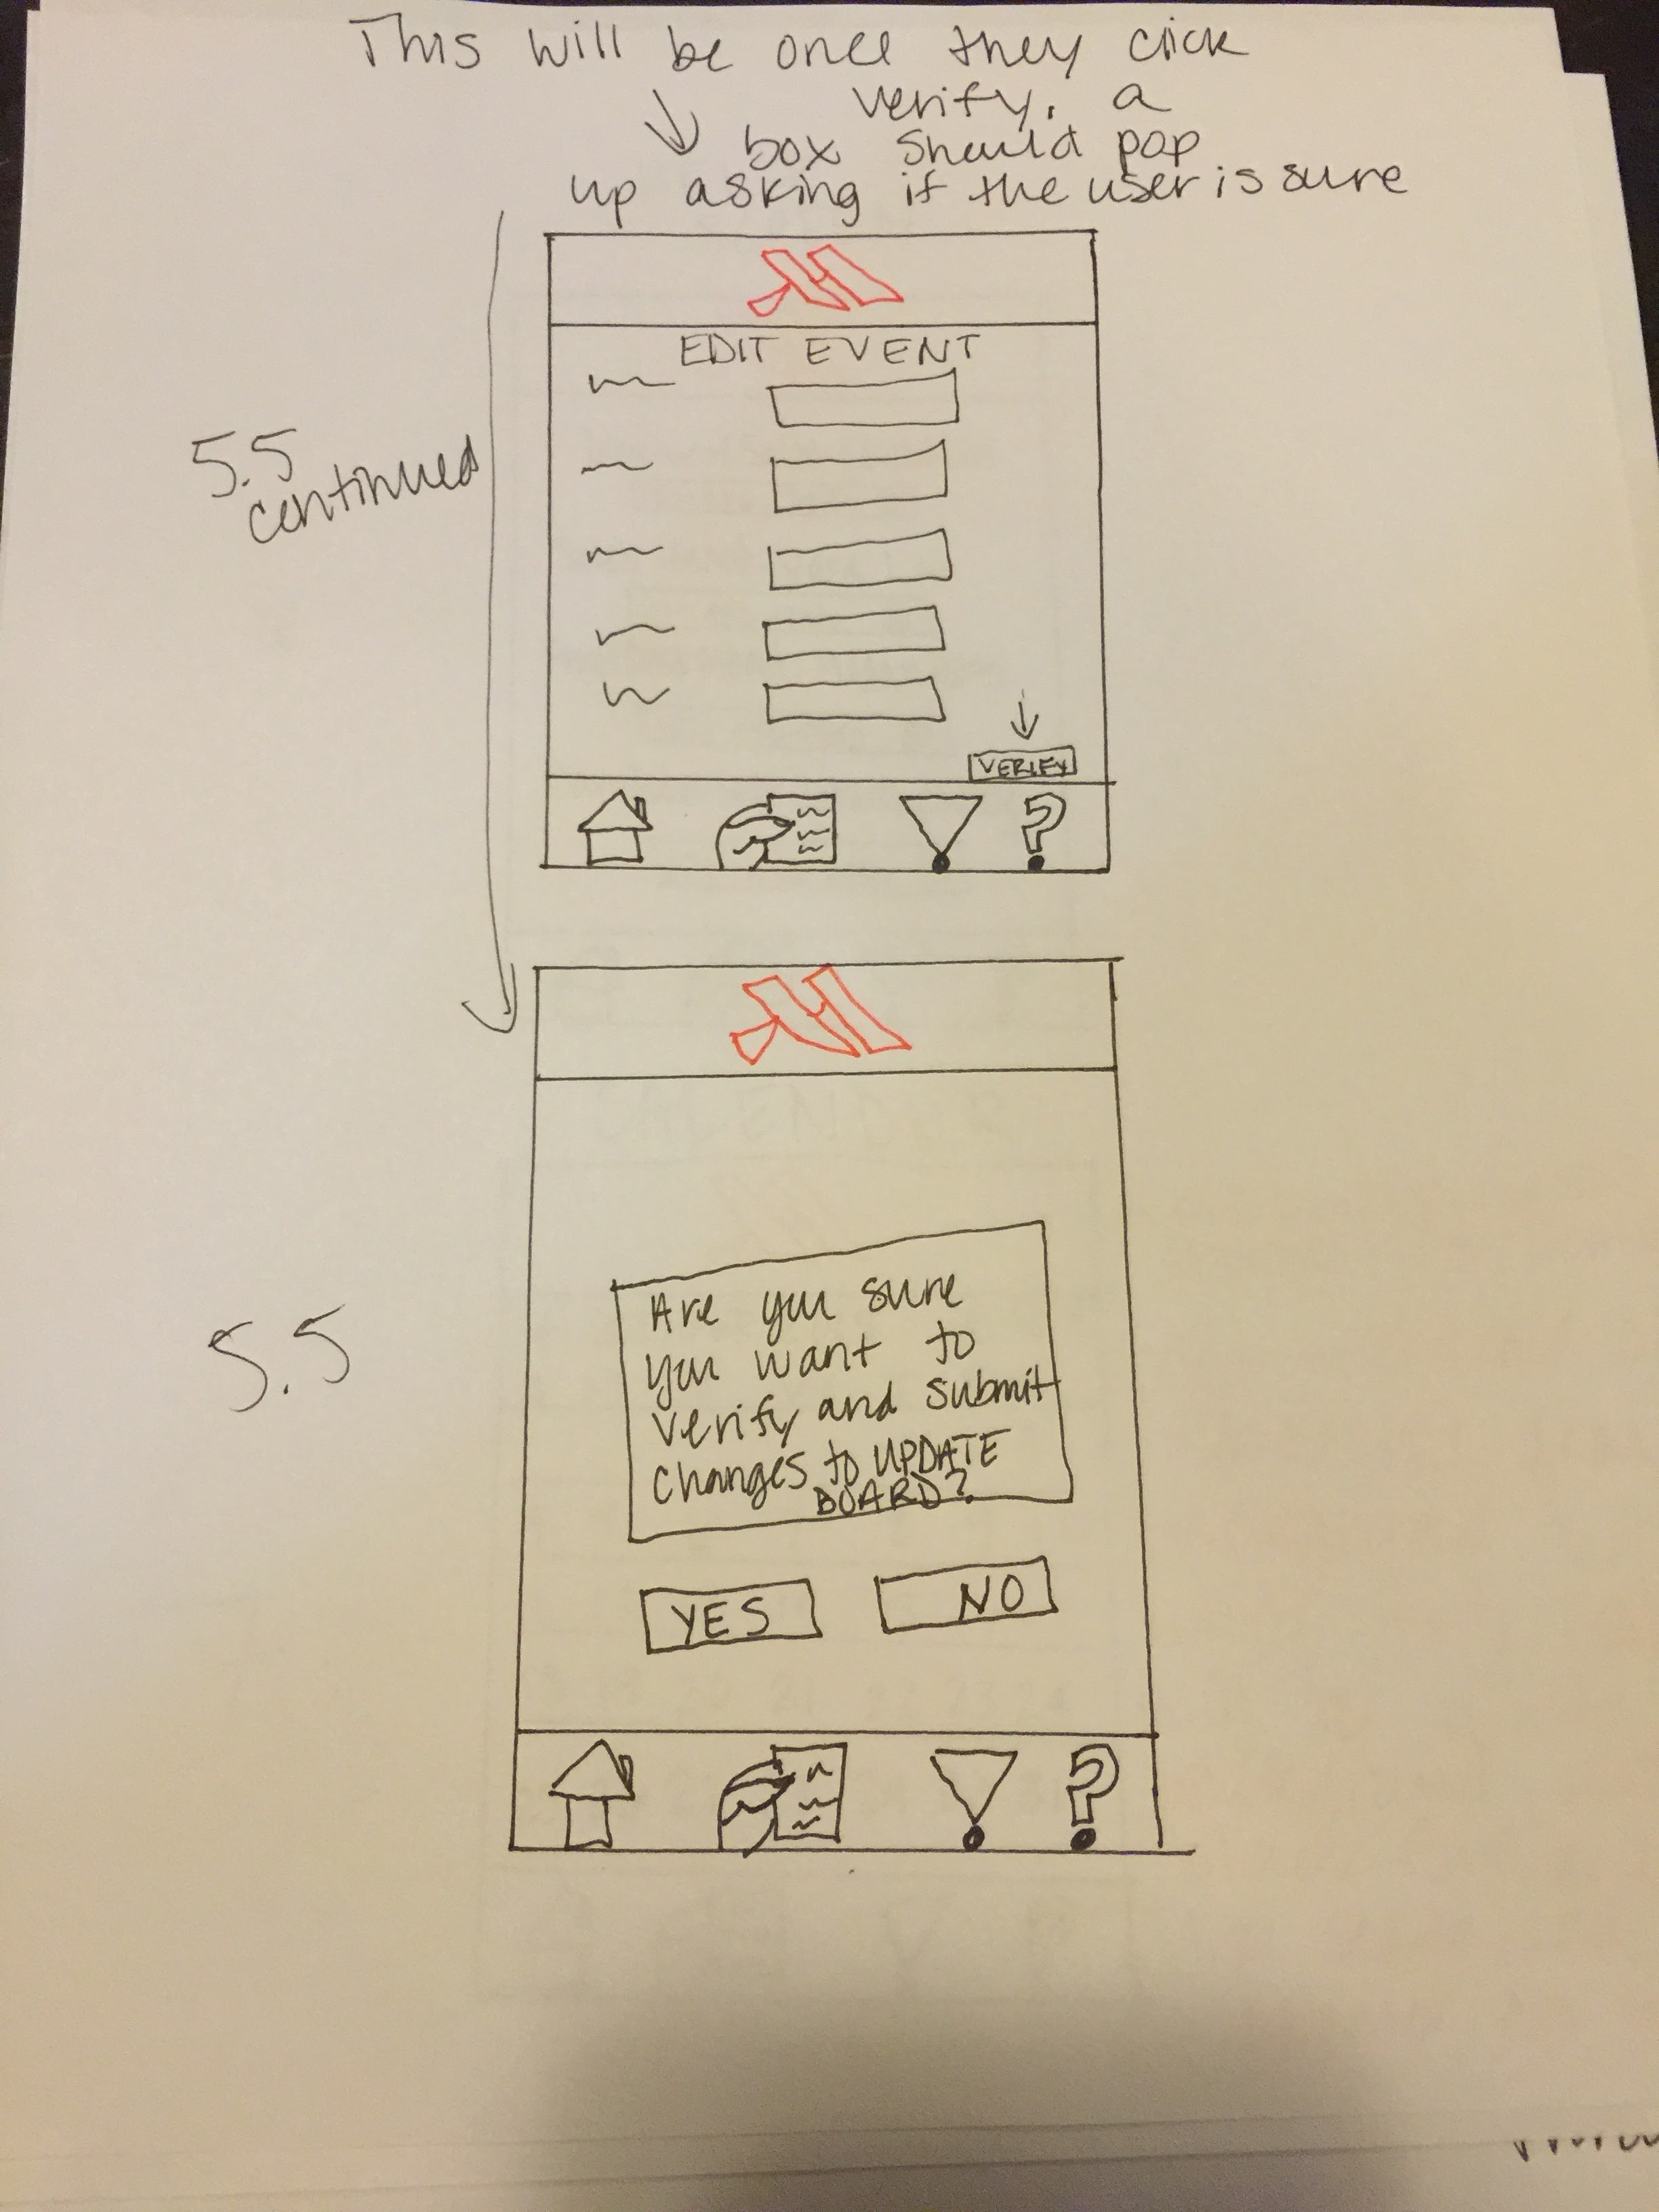 This will be once they click
verify. a
box should pop
up asking if the user is sure
5.5
continued
EDIT EVENT
VERIFY
?
5.5
Are you sure
you want to
verify and submit
changes to UPDATE
BOARD?
YES
NO
?